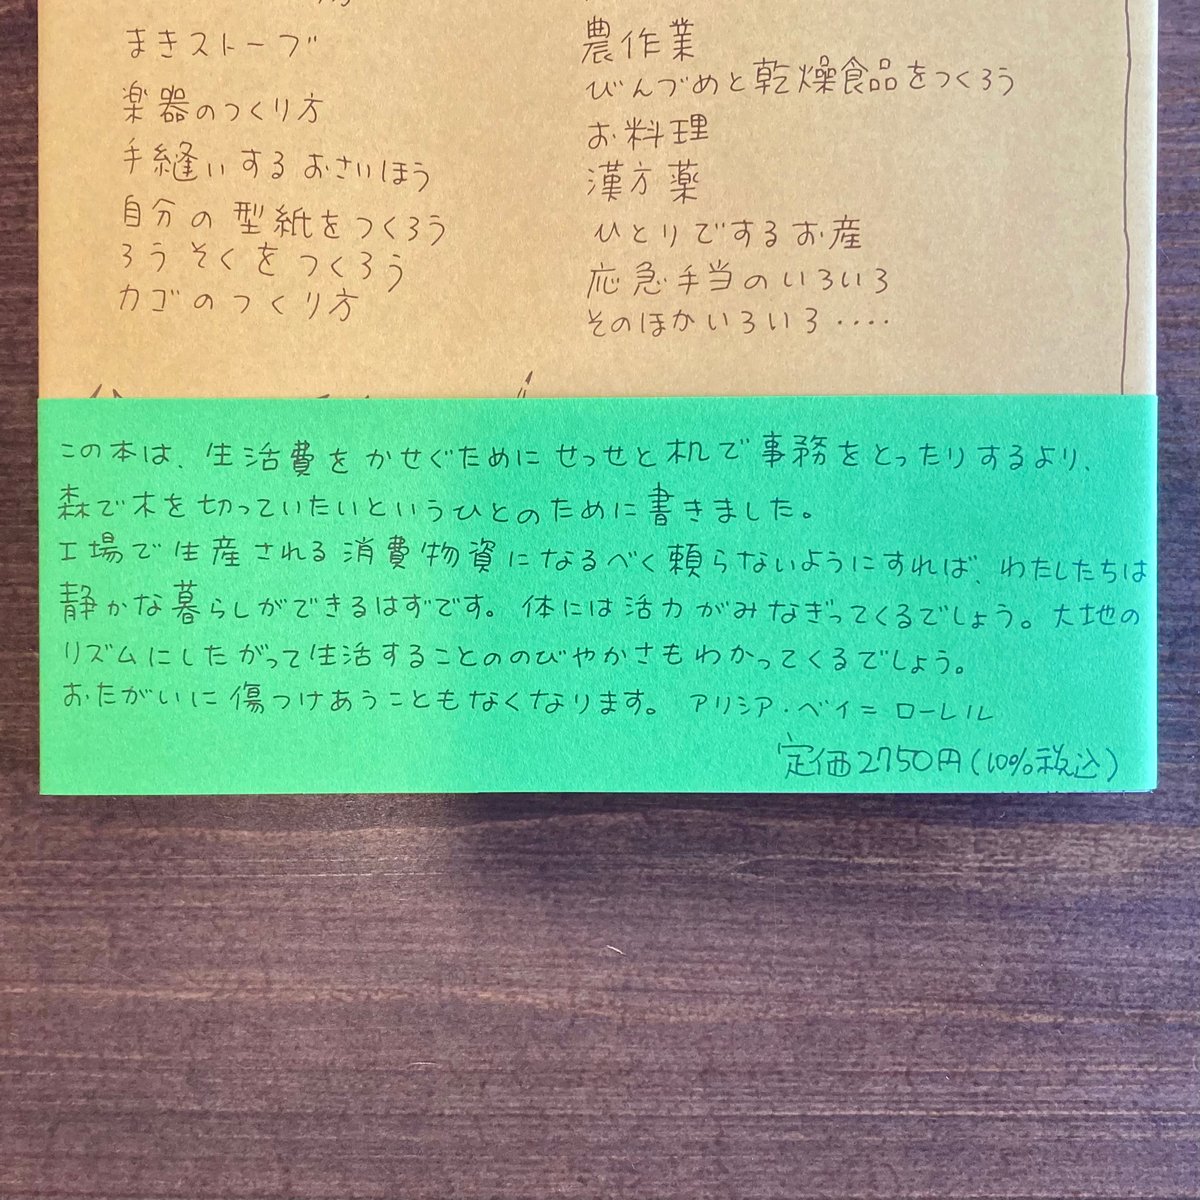 まきストーブ
楽器のつくり方
手縫いするおさいほう
自分の型紙をつくろう
ろうそくをつくろう
カゴのつくり方
農作業
びんづめと乾燥食品をつくろう
お料理
漢方薬
ひとりでするお産
応急手当のいろいろ
そのほかいろいろ····
この本は、生活費をかせぐためにせっせと机で事務をとったりするより、
森で木を切っていたいというひとのために書きました。
工場で生産される消費物資になるべく頼らないようにすれば、わたしたちは
静かな暮らしができるはずです。体には活力がみなぎってくるでしょう。大地の
リズムにしたがって生活することののびやかさもわかってくるでしょう。
おたがいに傷つけあうこともなくなります。 アリシア・ベイ=ローレル
定価2750円(10%税込)